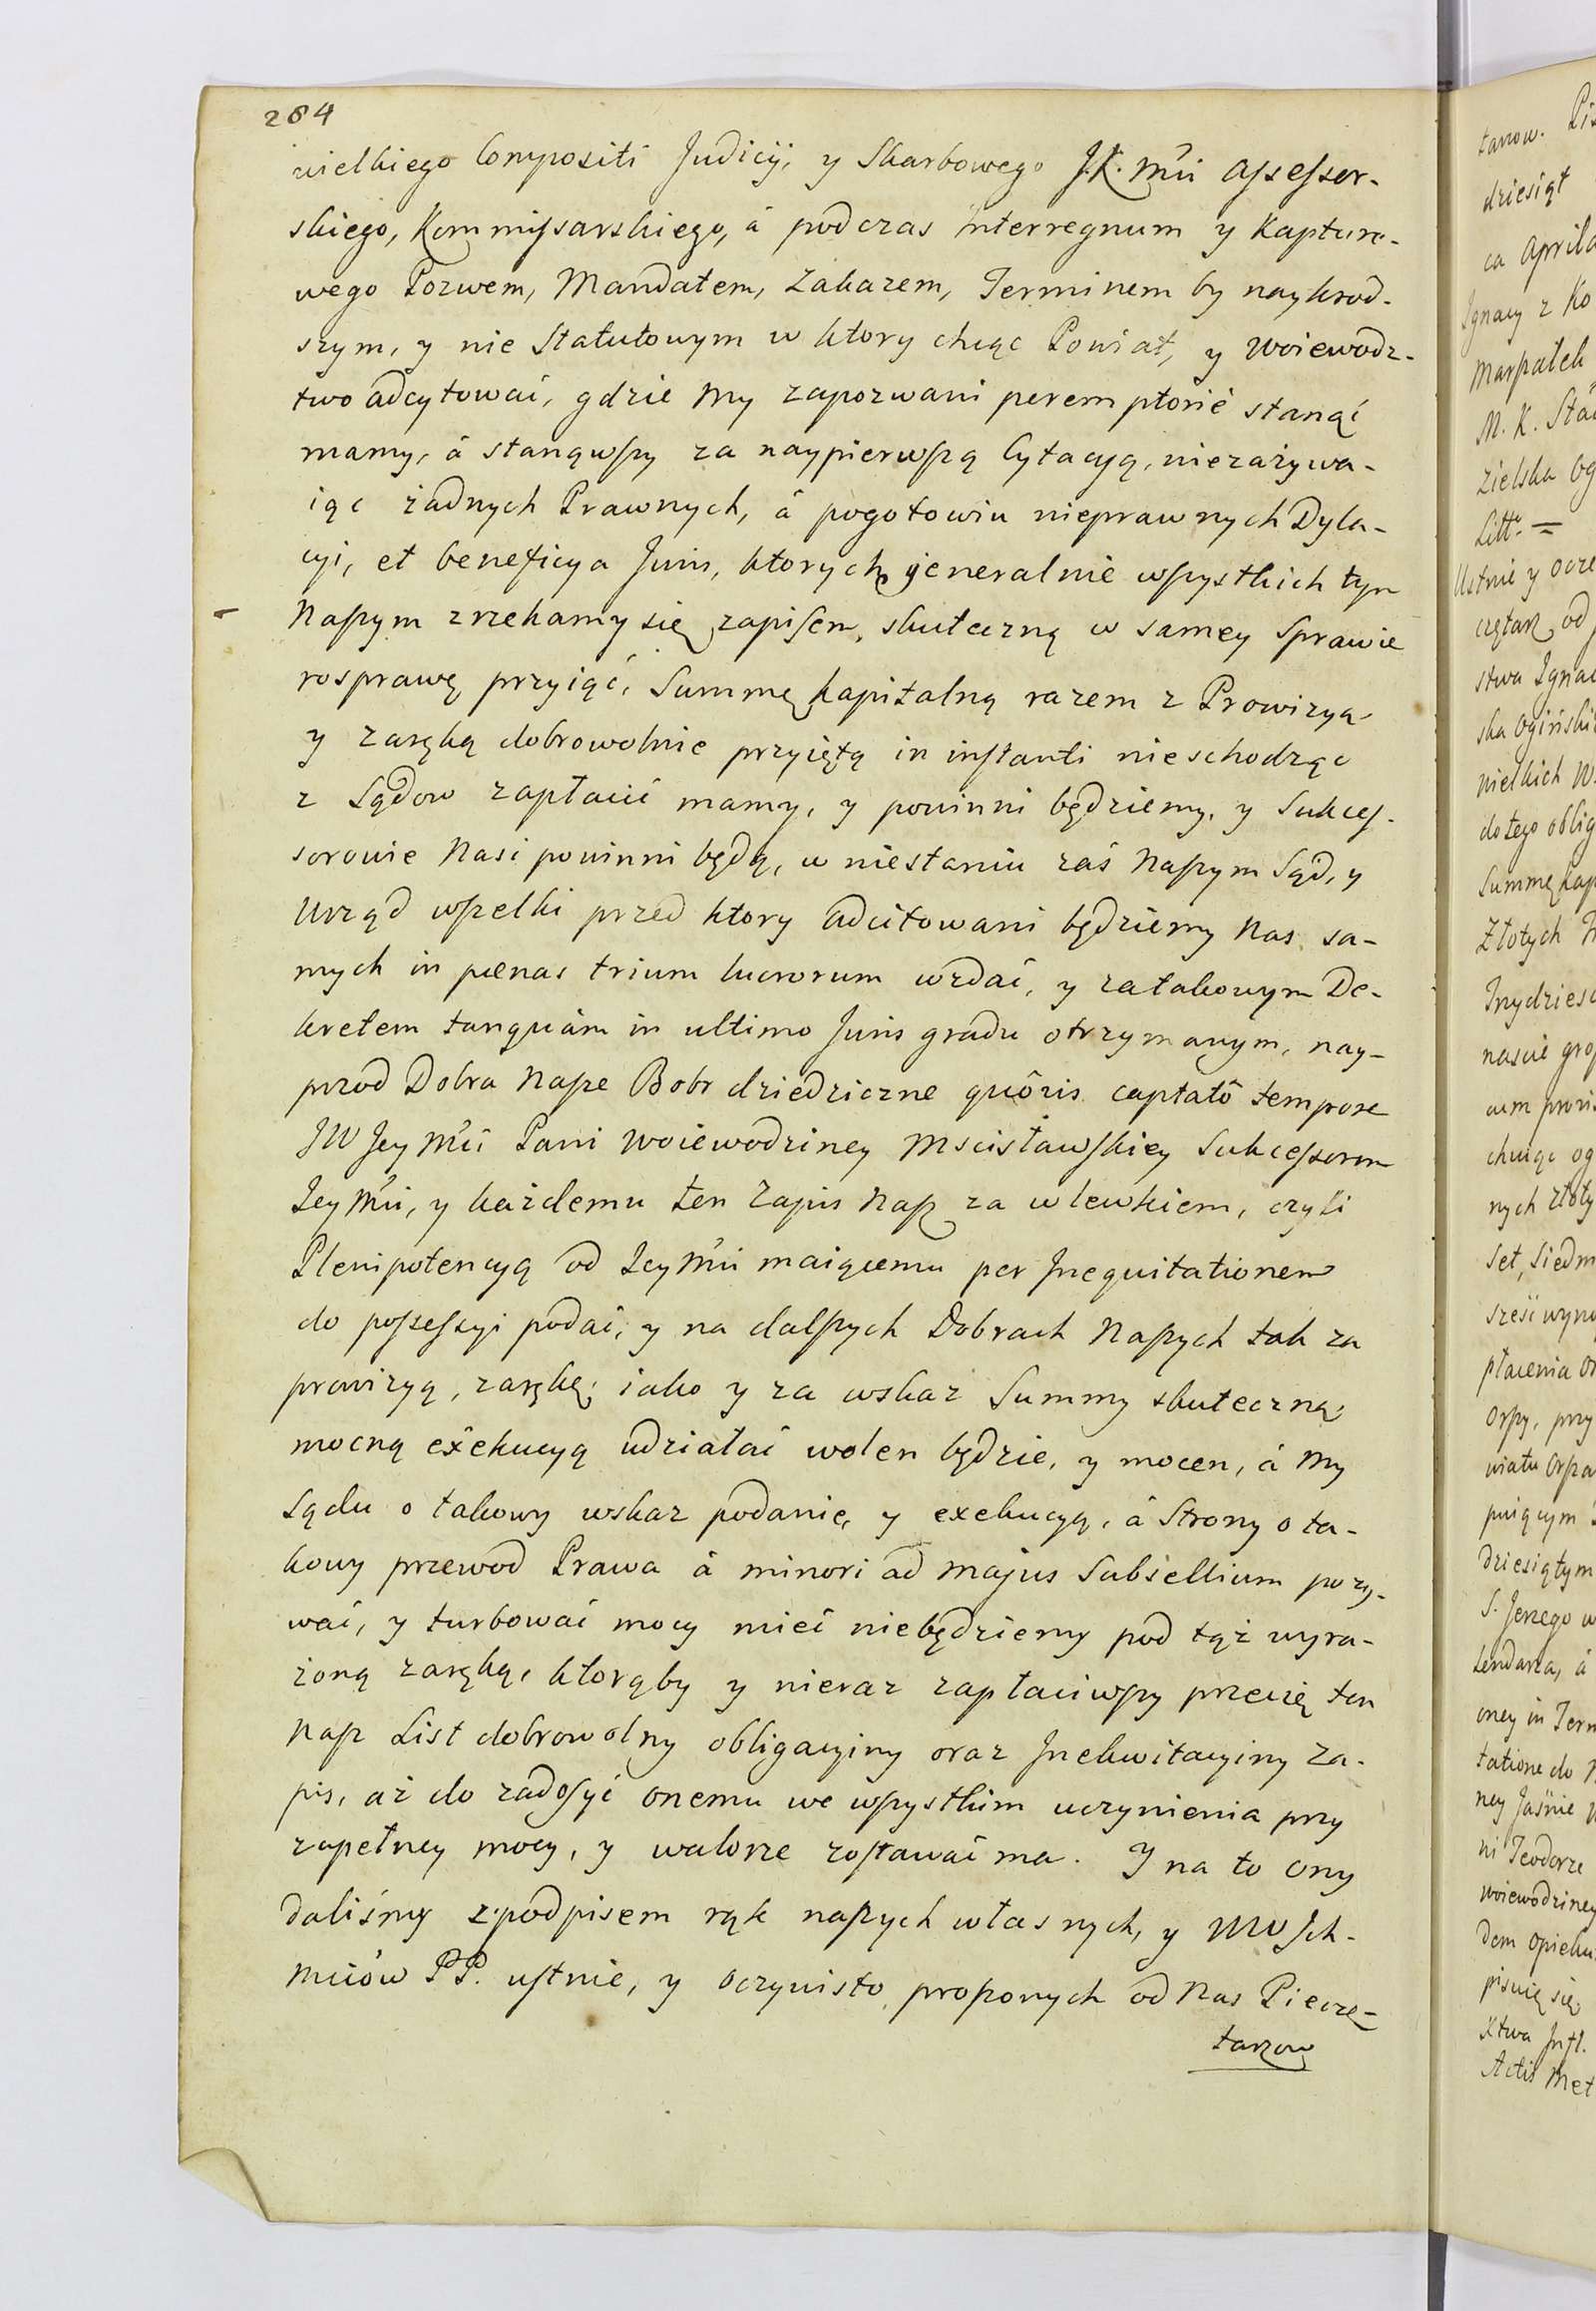 284
wielkiego Compositi Judicij, y Skarbowego J.K. Mci Assessor-
skiego, Kommissarskiego, á podczas Interregnum y Kapturo-
wego Pozwem, Mandatem, Zakazem, Terminem by naykrod-
szym, y nie Statutowym w ktory chcąc Powiat, y Woiewodz-
two adcytować, gdzie My zapozwani peremptorié stanąć
mamy, á stanąwszy za naypierwszą Cytacyą, niezażywa-
iąc żadnych Prawnych, á pogotowiu nieprawnych Dyla-
cyi, et beneficya Juris, ktorych generalnie wszystkich tym
Naszym zrzekamy się zapisem, skuteczną w samey Sprawie
rosprawę przyiąć, Summę kapitalną razem z Prowizyą
y zaręką dobrowolnie przyiętą in instanti nieschodząc
z Sądow zapłacić mamy, y powinni będziemy, y Sukces-
sorowie Nasi powinni będą, w niestaniu zaś Naszym Sąd, y
Urząd wszelki przed ktory adcitowani będziemy Nas sa-
mych in pænas trium lucrorum wzdać, y zatakowym De-
kretem tanquám in ultimo Juris gradu otrzymanym, nay-
przod Dobra Nasze Bobr dziedziczne quôvis captatô tempore
JW Jey Mci Pani Woiewodziney Mscisławskiey Sukcessorom
Jey Mci, y każdemu ten Zapis Nasz za wlewkiem, czyli
Plenipotencyą od Jey Mci maiącemu per Inequitationem
do possessyi podać, y na dalszych Dobrach Naszych tak za
prowizyą, zarękę, iako y za wskaz Summy skuteczną
mocną exekucyą udziałać wolen będzie, y mocen, á My
Sądu o takowy wskaz podanie, y exekucyą, á Strony o ta-
kowy przewod Prawa á minori ad majus Subsellium pozy-
wać, y turbować mocy mieć niebędziemy pod tąż wyra-
żoną zaręką, ktorąby y nieraz zapłaciwszy przecię ten
Nasz List dobrowolny obligacyiny oraz Inekwitacyiny Za-
pis, aż do zadosyć onemu we wszystkim uczynienia przy
zupełney mocy, y walorze zostawać ma. Y na to ony
daliśmy z podpisem rąk naszych własnych, y WW Ich-
Mciów PP. ustnie, y oczywisto proszonych od Nas Pieczę-
tarzow
tarow.
dziesiąt
ca Aprila
Ignacy z Ko
M. K.
Litt.
Ustnie y ocze
stwa Ignac
ska Ogińskie
do tego oblig
Summę kap
Złotych
chcąc og
nych złoty
set, siedm
płacenia
dziesiątym
S. Jerzego w
oney in Term
tatione do
ney Jaśnie
ni Teodorze
Woiewodziney
dem opieku
Actis Met